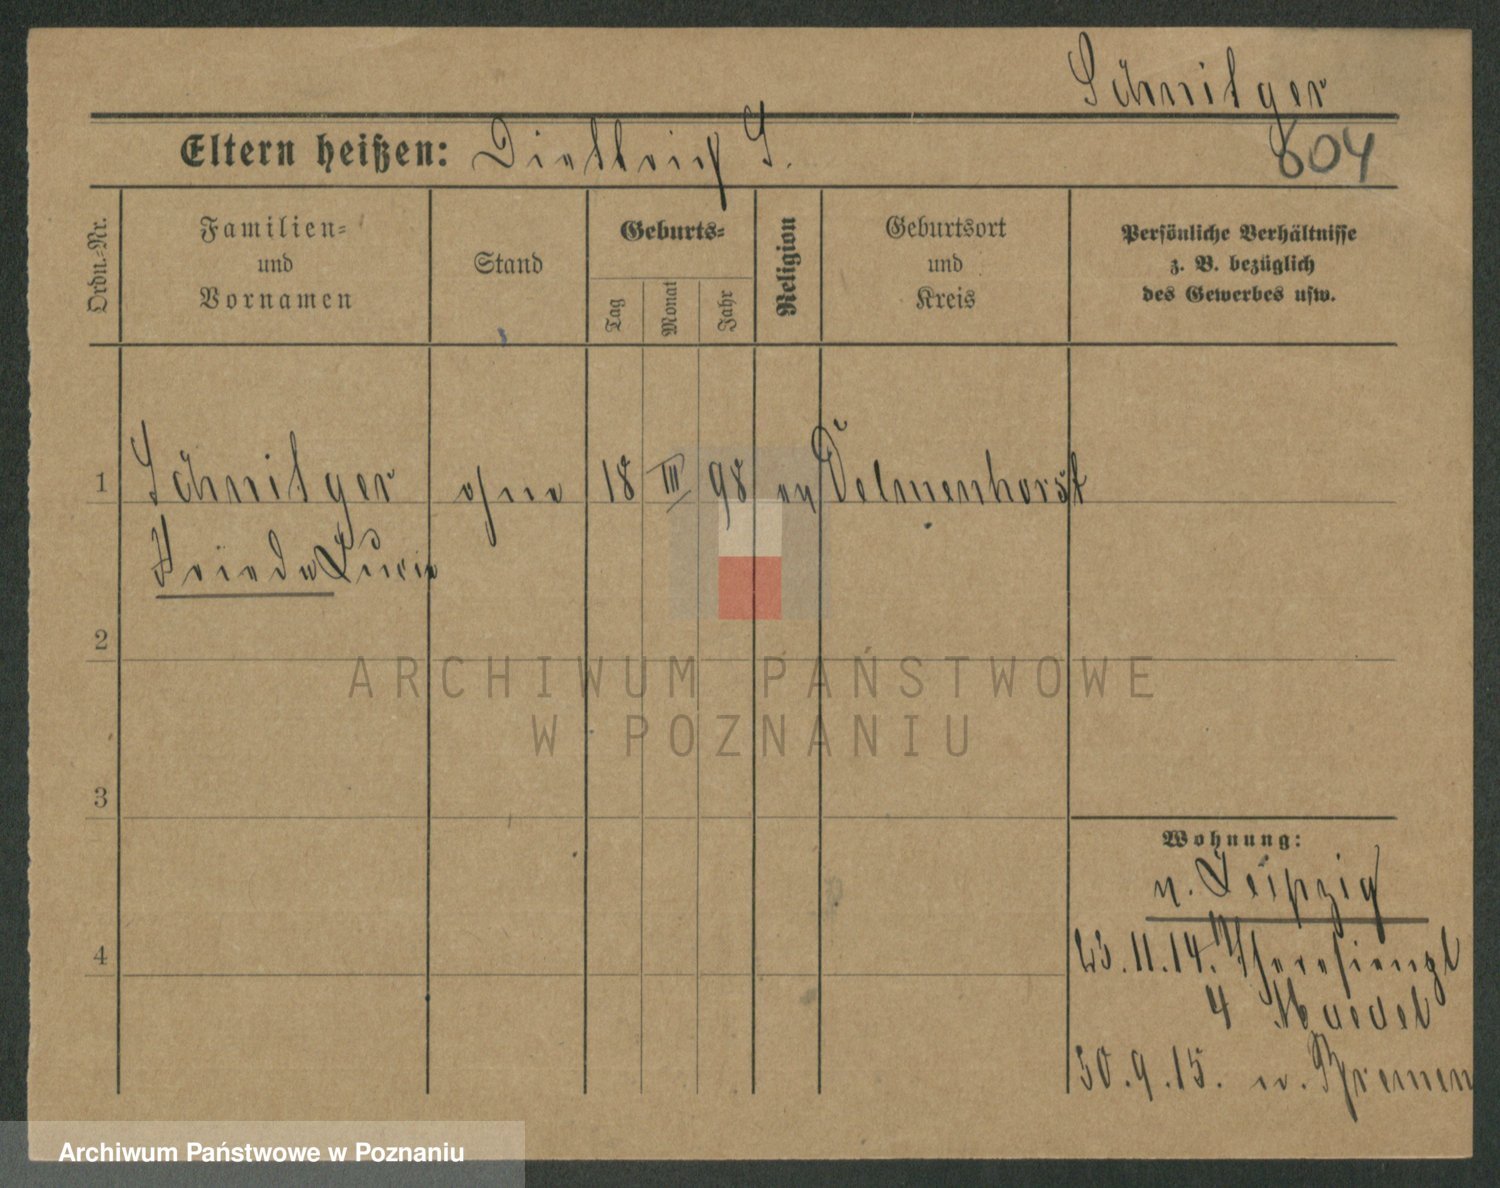 Schnitger
Eltern heißen: Dietrich S.
804
Ordn.-Nr.
Familien-
und
Vornamen
Stand
Geburts-
Tag
Monat
Jahr
Religion
Geburtsort
und
Kreis
Persönliche Verhältnisse
z. B. bezüglich
des Gewerbes usw.
1 Schnitger ohne 18 III 98 ev Delmenhorst
Frieda Lucie
2
3
4
ARCHIWUM PAŃSTWOWE
W POZNANIU
Wohnung:
n. Leipzig
23.11.14.
4
30.9.15. n. Bremen
Archiwum Państwowe w Poznaniu